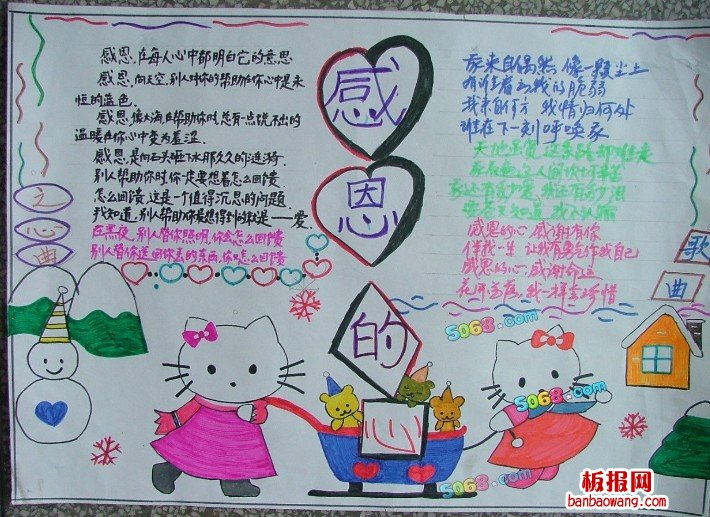 感恩的心
之心曲
感恩,在每人心中都明白它的意思
感恩,向天空,别人对你的帮助在你心中是永
恒的蓝色.
感恩,像大海,在帮助你时,总有一点说不出的
温暖在你心中变为羞涩.
感恩,是向石头咂下水那久久的涟漪.
别人帮助你时你一定要想着怎么回馈
怎么回馈,这是一个值得沉思的问题
我知道,别人帮助你最想得到的就是——爱.
在黑夜,别人替你照明,你会怎么回馈
别人替你送回你丢的东西,你怎么回馈
歌曲
我来自偶然 像一颗尘土
有谁看出我的脆弱
我来自何方 我情归何处
谁在下一刻呼唤我
天地虽宽 这条路却难走
我看遍这人间坎坷辛苦
我还有多少爱 我还有多少泪
要苍天知道 我不认输
感恩的心 感谢有你
伴我一生 让我有勇气作我自己
感恩的心 感谢命运
花开花落 我一样会珍惜
5068.com
5068.com
5068.com
板报网
banbaowang.com